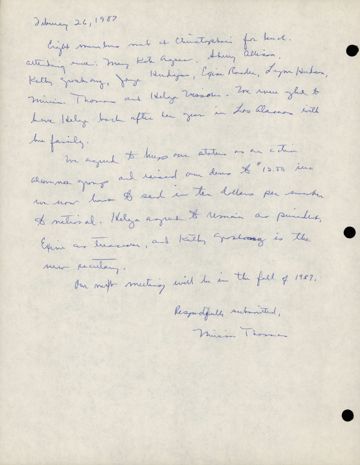 February 26, 1987
Eight members met at Christopher's for lunch.
attending were: Mary Kate Agnew, Sherry Allison,
Kathy Goshong, Joyce Hudgins, Epsie Roeder, Lynn Hudson,
Miriam Thomas and Helga Vessels. We were glad to
have Helga back after her year in Los Alamos with
her family.
We agreed to keep our status as an active
alumnae group and raised our dues to $12.00 since
we now have to send in ten dollars per member
to national. Helga agreed to remain as president,
Epsie as treasurer, and Kathy Goshong is the
new secretary.
Our next meeting will be in the fall of 1987.
Respectfully submitted,
Miriam Thomas